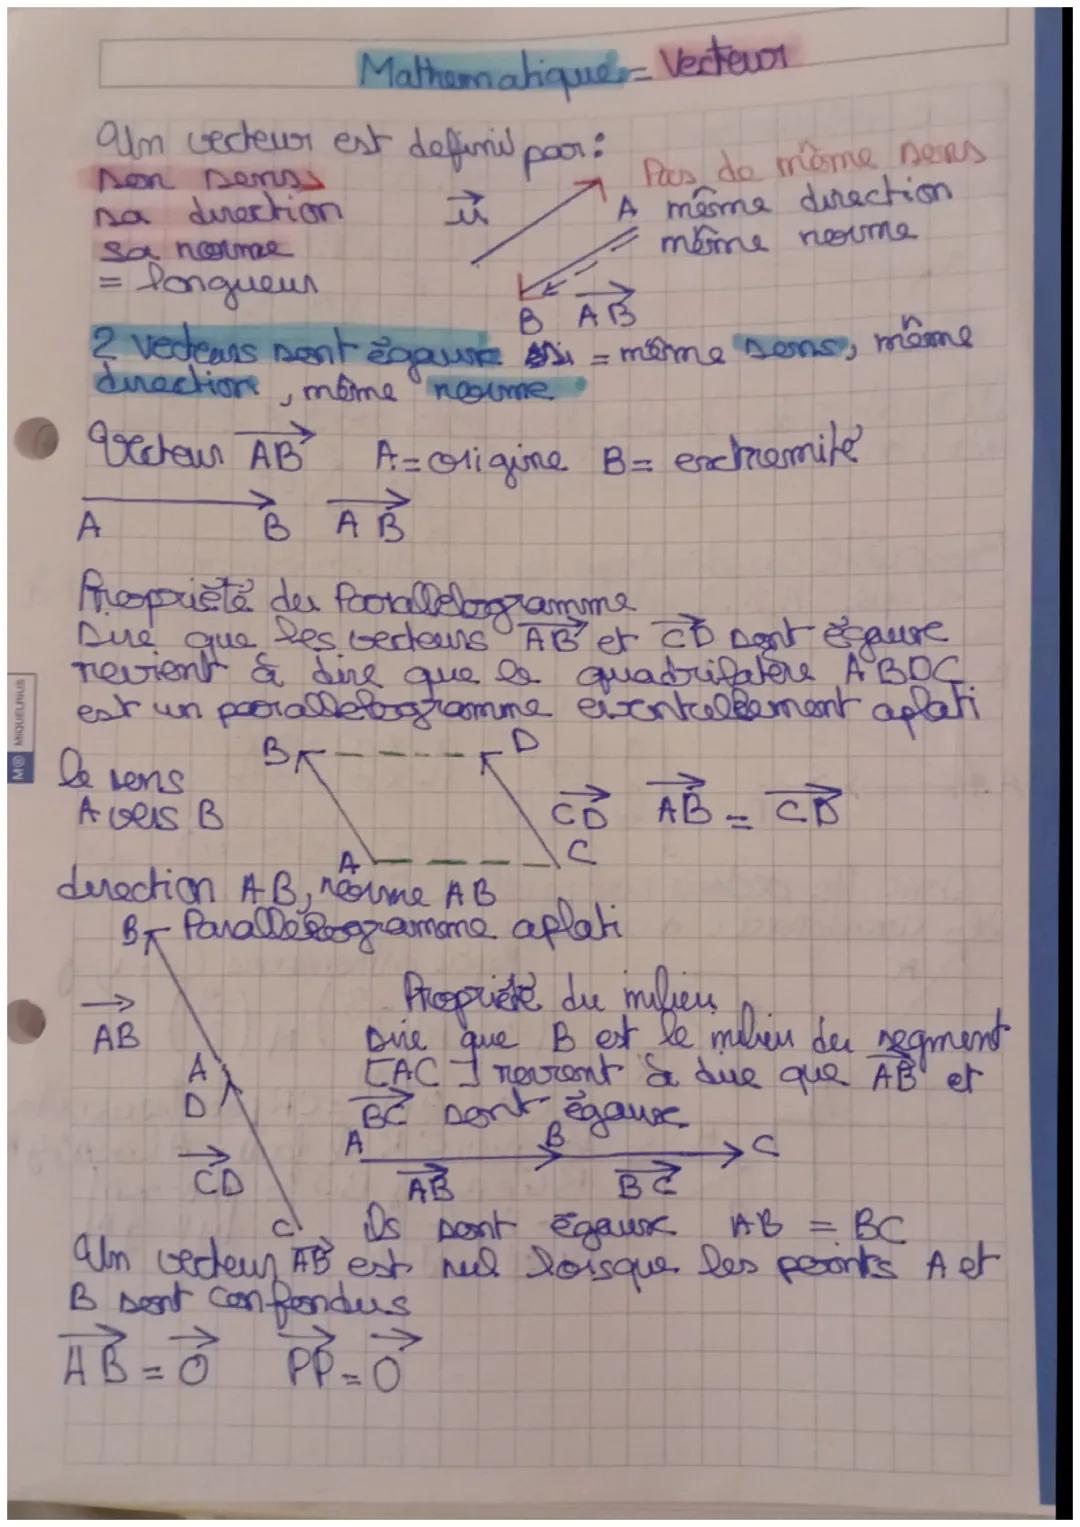 Mathematique = Vecteur
Un vecteur est definit par :
son sens
sa direction
sa norme
= longueur
u⃗
Pas de même sens
A même direction
même norme
B AB⃗
2 vecteurs sont égaux si = même sens, même
direction, même norme
Vecteur AB⃗ A = origine B = extremité
A B AB⃗
Propriété du Parallelogramme
Dire que les vecteurs AB⃗ et CD⃗ sont égaux
revient à dire que le quadrilatère ABDC
est un parallelogramme eventuellement aplati
B D
le sens
A vers B
CD⃗ AB⃗ = CD⃗
A C
direction AB, norme AB
B Parallélogramme aplati
Propriété du milieu
AB⃗
Dire que B est le milieu du segment
[AC] revient à dire que AB⃗ et
BC⃗ sont égaux
A
D
A B C
CD⃗
AB⃗ BC⃗
C
ils sont égaux AB = BC
Un vecteur AB⃗ est nul lorsque les points A et
B sont confondus
AB⃗ = 0⃗ PP⃗ = 0⃗
MIQUELRIUS